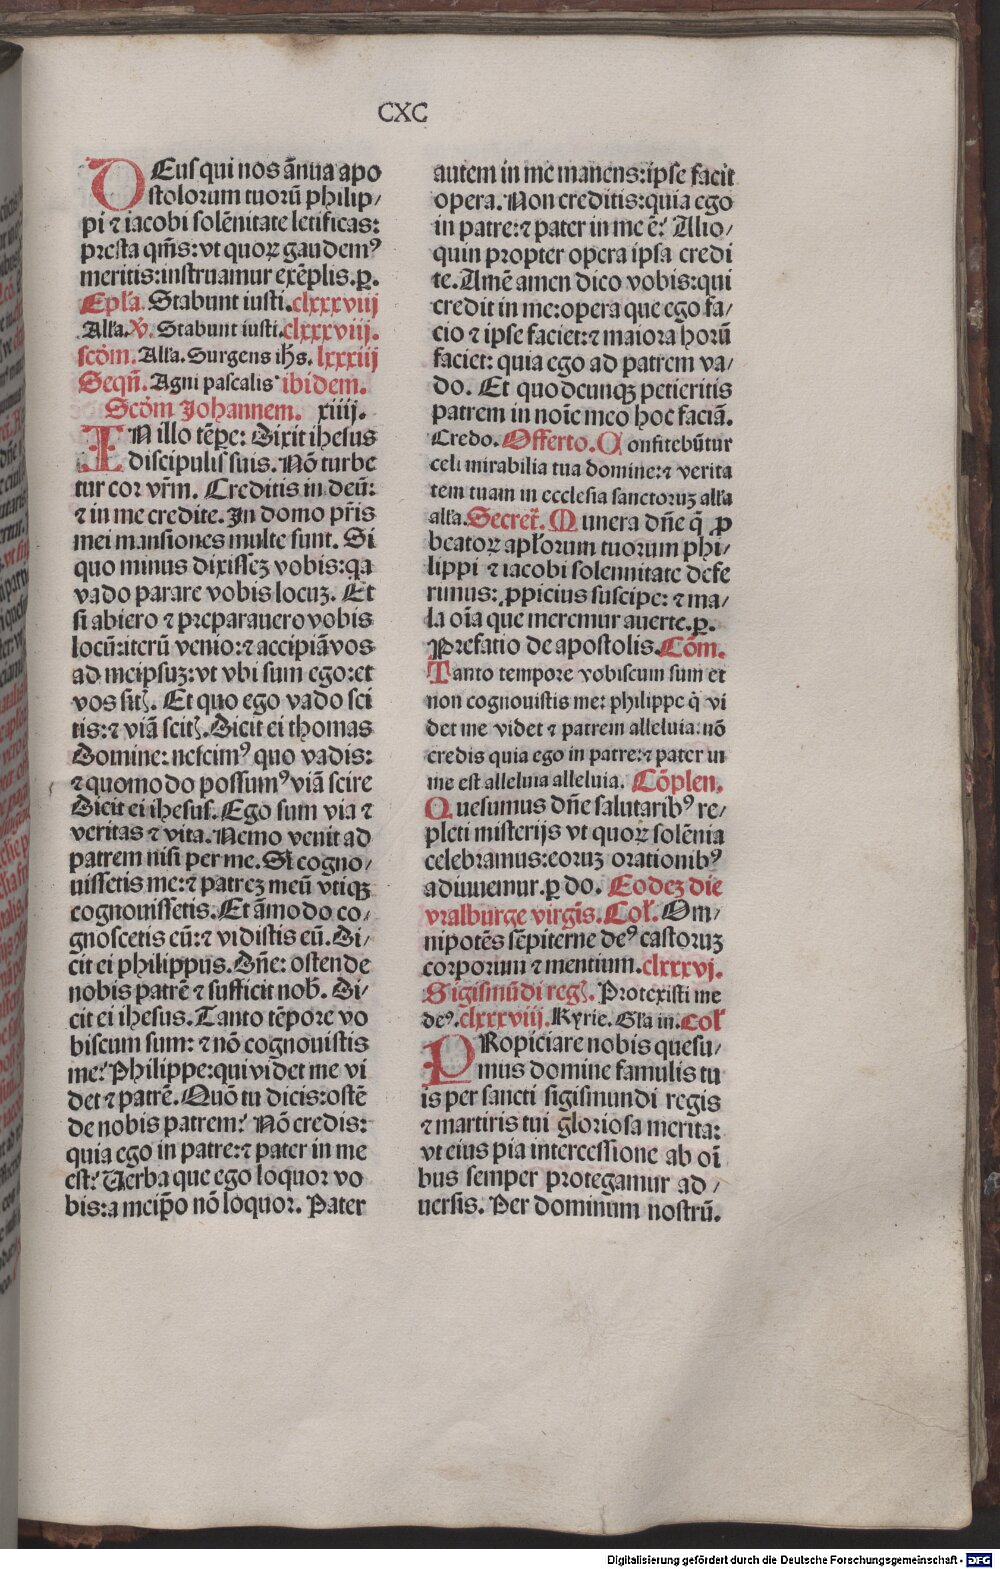 CXC
DEus qui nos ānua apo
stolorum tuorū philip/
pi ⁊ iacobi solēnitate letificas:
presta qm̄s: vt quoꝝ gaudemꝰ
meritis: instruamur exēplis. p.
Epl'a. Stabunt iusti. clxxxviij
All'a. V̄. Stabunt iusti. clxxxviij.
scōm. All'a. Surgens ih̄s. lxxxiij
Seqn̄. Agni pascalis ibidem.
Scōm Johannem. xiiij.
IN illo tēpe: Dixit ihesus
discipulis suis. Nō turbe
tur cor vr̄m. Creditis in deū:
⁊ in me credite. In domo pr̄is
mei mansiones multe sunt. Si
quo minus dixissez vobis: qa
vado parare vobis locuz. Et
si abiero ⁊ preparauero vobis
locū: iterū venio: ⁊ accipiā vos
ad meipsuz: vt vbi sum ego: et
vos sitꝭ. Et quo ego vado sci
tis: ⁊ viā scitꝭ. Dicit ei thomas
Domine: nescimꝰ quo vadis:
⁊ quomodo possumꝰ viā scire
Dicit ei ihesus. Ego sum via ⁊
veritas ⁊ vita. Nemo venit ad
patrem nisi per me. Si cogno/
uissetis me: ⁊ patrez meū vtiqꝫ
cognouissetis. Et āmodo co/
gnoscetis eū: ⁊ vidistis eū. Di/
cit ei philippus. Dn̄e: ostende
nobis patrē ⁊ sufficit nob̄. Di/
cit ei ihesus. Tanto tēpore vo
biscum sum: ⁊ nō cognouistis
me? Philippe: qui videt me vi
det ⁊ patrē. Quō tu dicis: ostē
de nobis patrem? Nō credis:
quia ego in patre: ⁊ pater in me
est? Verba que ego loquor vo
bis: a meip̄o nō loquor. Pater
autem in me manens: ipse facit
opera. Non creditis: quia ego
in patre: ⁊ pater in me ē? Alio/
quin propter opera ipsa credi
te. Amē amen dico vobis: qui
credit in me: opera que ego fa/
cio ⁊ ipse faciet: ⁊ maiora horū
faciet: quia ego ad patrem va/
do. Et quodcunqꝫ petieritis
patrem in noīe meo hoc faciā.
Credo. Offerto. Confitebūtur
celi mirabilia tua domine: ⁊ verita
tem tuam in ecclesia sanctoruz all'a
all'a. Secret̄. Munera dn̄e q̄ ꝓ
beatoꝝ apl'orum tuorum phi/
lippi ⁊ iacobi solennitate defe
rimus: ꝓpicius suscipe: ⁊ ma/
la oīa que meremur auerte. p.
Prefatio de apostolis. Cōm.
Tanto tempore vobiscum sum et
non cognouistis me: philippe q̄ vi
det me videt ⁊ patrem alleluia: nō
credis quia ego in patre: ⁊ pater in
me est alleluia alleluia. Cōplen.
Quesumus dn̄e salutaribꝰ re/
pleti misterijs vt quoꝝ solēnia
celebramus: eoruz orationibꝰ
adiuuemur. p do. Eodez die
vvalburge virgīs. Col'. Om/
nipotēs sēpiterne deꝰ castoruz
corporum ⁊ mentium. clxxxvj.
Sigismūdi regꝭ. Protexisti me
deꝰ. clxxxviij. Kyrie. Gl'a in. Col'
PRopiciare nobis quesu/
mus domine famulis tu
is per sancti sigismundi regis
⁊ martiris tui gloriosa merita:
vt eius pia intercessione ab oī
bus semper protegamur ad/
uersis. Per dominum nostrū.
Digitalisierung gefördert durch die Deutsche Forschungsgemeinschaft - DFG